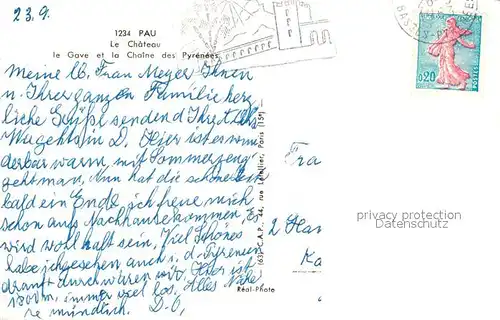 23.9.
1234 PAU
Le Château
le Gave et la Chaîne des Pyrénées
0,20
POSTES
Meine lb. Frau Meyer Ihnen
u. Ihrer ganzen Familie herz
liche Grüße senden d Ihre
in D. Hier ist es wun
derbar warm, mit Sommerzeug
geht man, Nun hat die schöne Zeit
bald ein Ende ich freue mich
schon aufs Nachhausekommen. Es
wird wohl kalt sein, Viel Schönes
habe ich gesehen, auch i. d. Pyrenäen
drauf u. durch waren wir, Hier ist
1800 m, immer viel los. Alles Nähe
re mündlich. D.O,
(63) C.A.P., 44, rue Letellier, Paris (15e)
Réal-Photo
Fra
2 Ha
privacy protection
Datenschutz